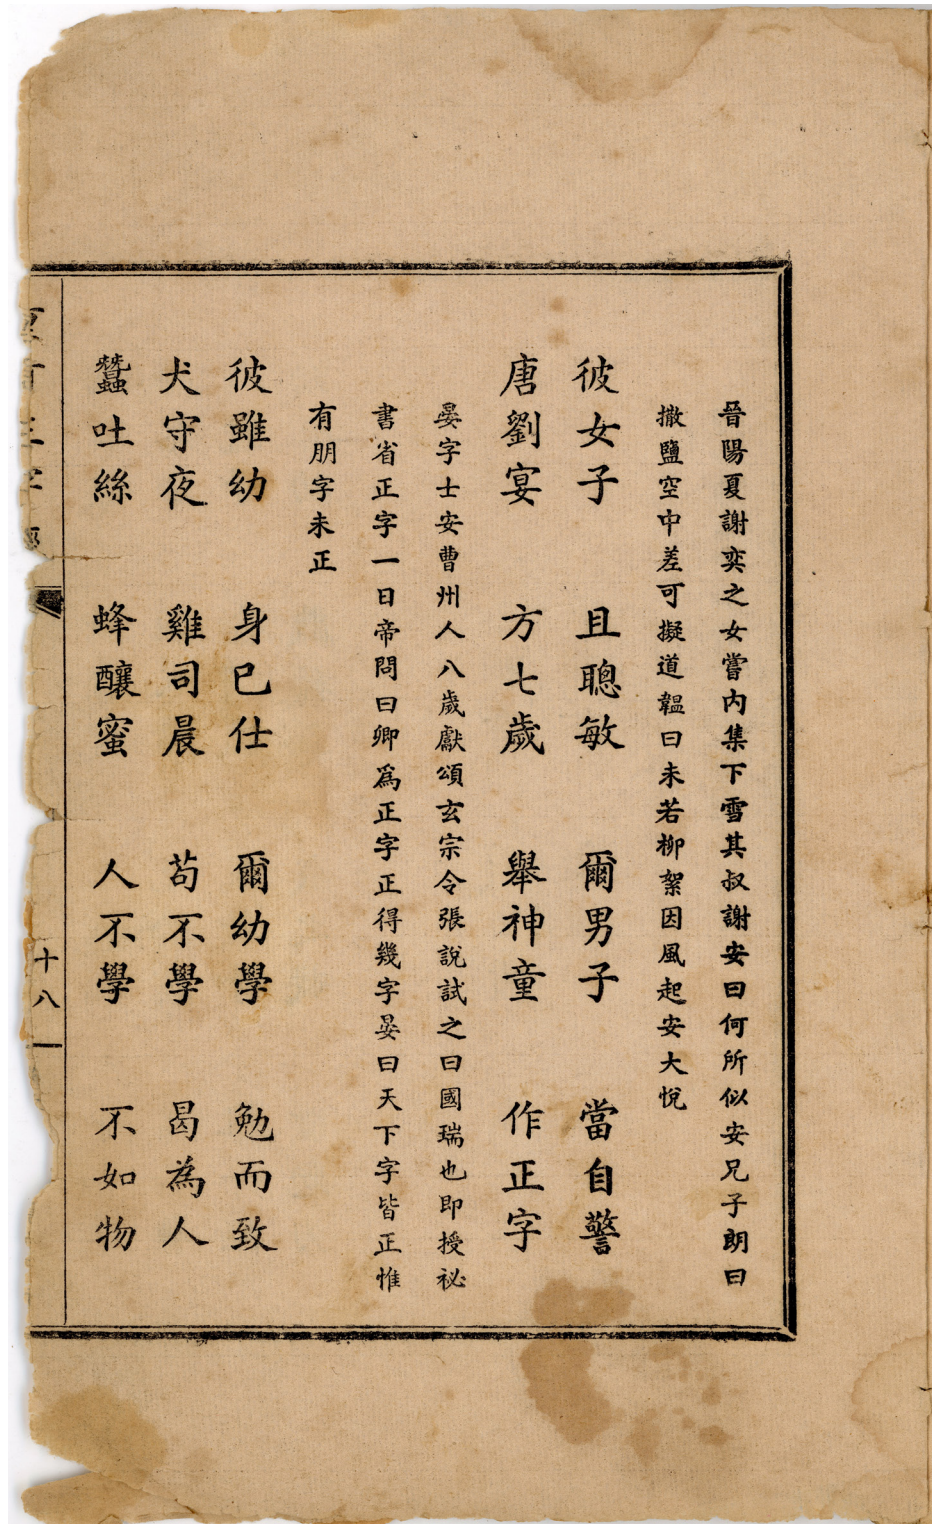 晉陽夏謝奕之女嘗內集下雪其叔謝安曰何所似安兄子朗曰
撒鹽空中差可擬道韞曰未若柳絮因風起安大悅
彼女子 且聰敏 爾男子 當自警
唐劉宴 方七歲 舉神童 作正字
晏字士安曹州人八歲獻頌玄宗令張說試之曰國瑞也即授祕
書省正字一日帝問曰卿爲正字正得幾字晏曰天下字皆正惟
有朋字未正
彼雖幼 身已仕 爾幼學 勉而致
犬守夜 雞司晨 苟不學 曷為人
蠶吐絲 蜂釀蜜 人不學 不如物
十八